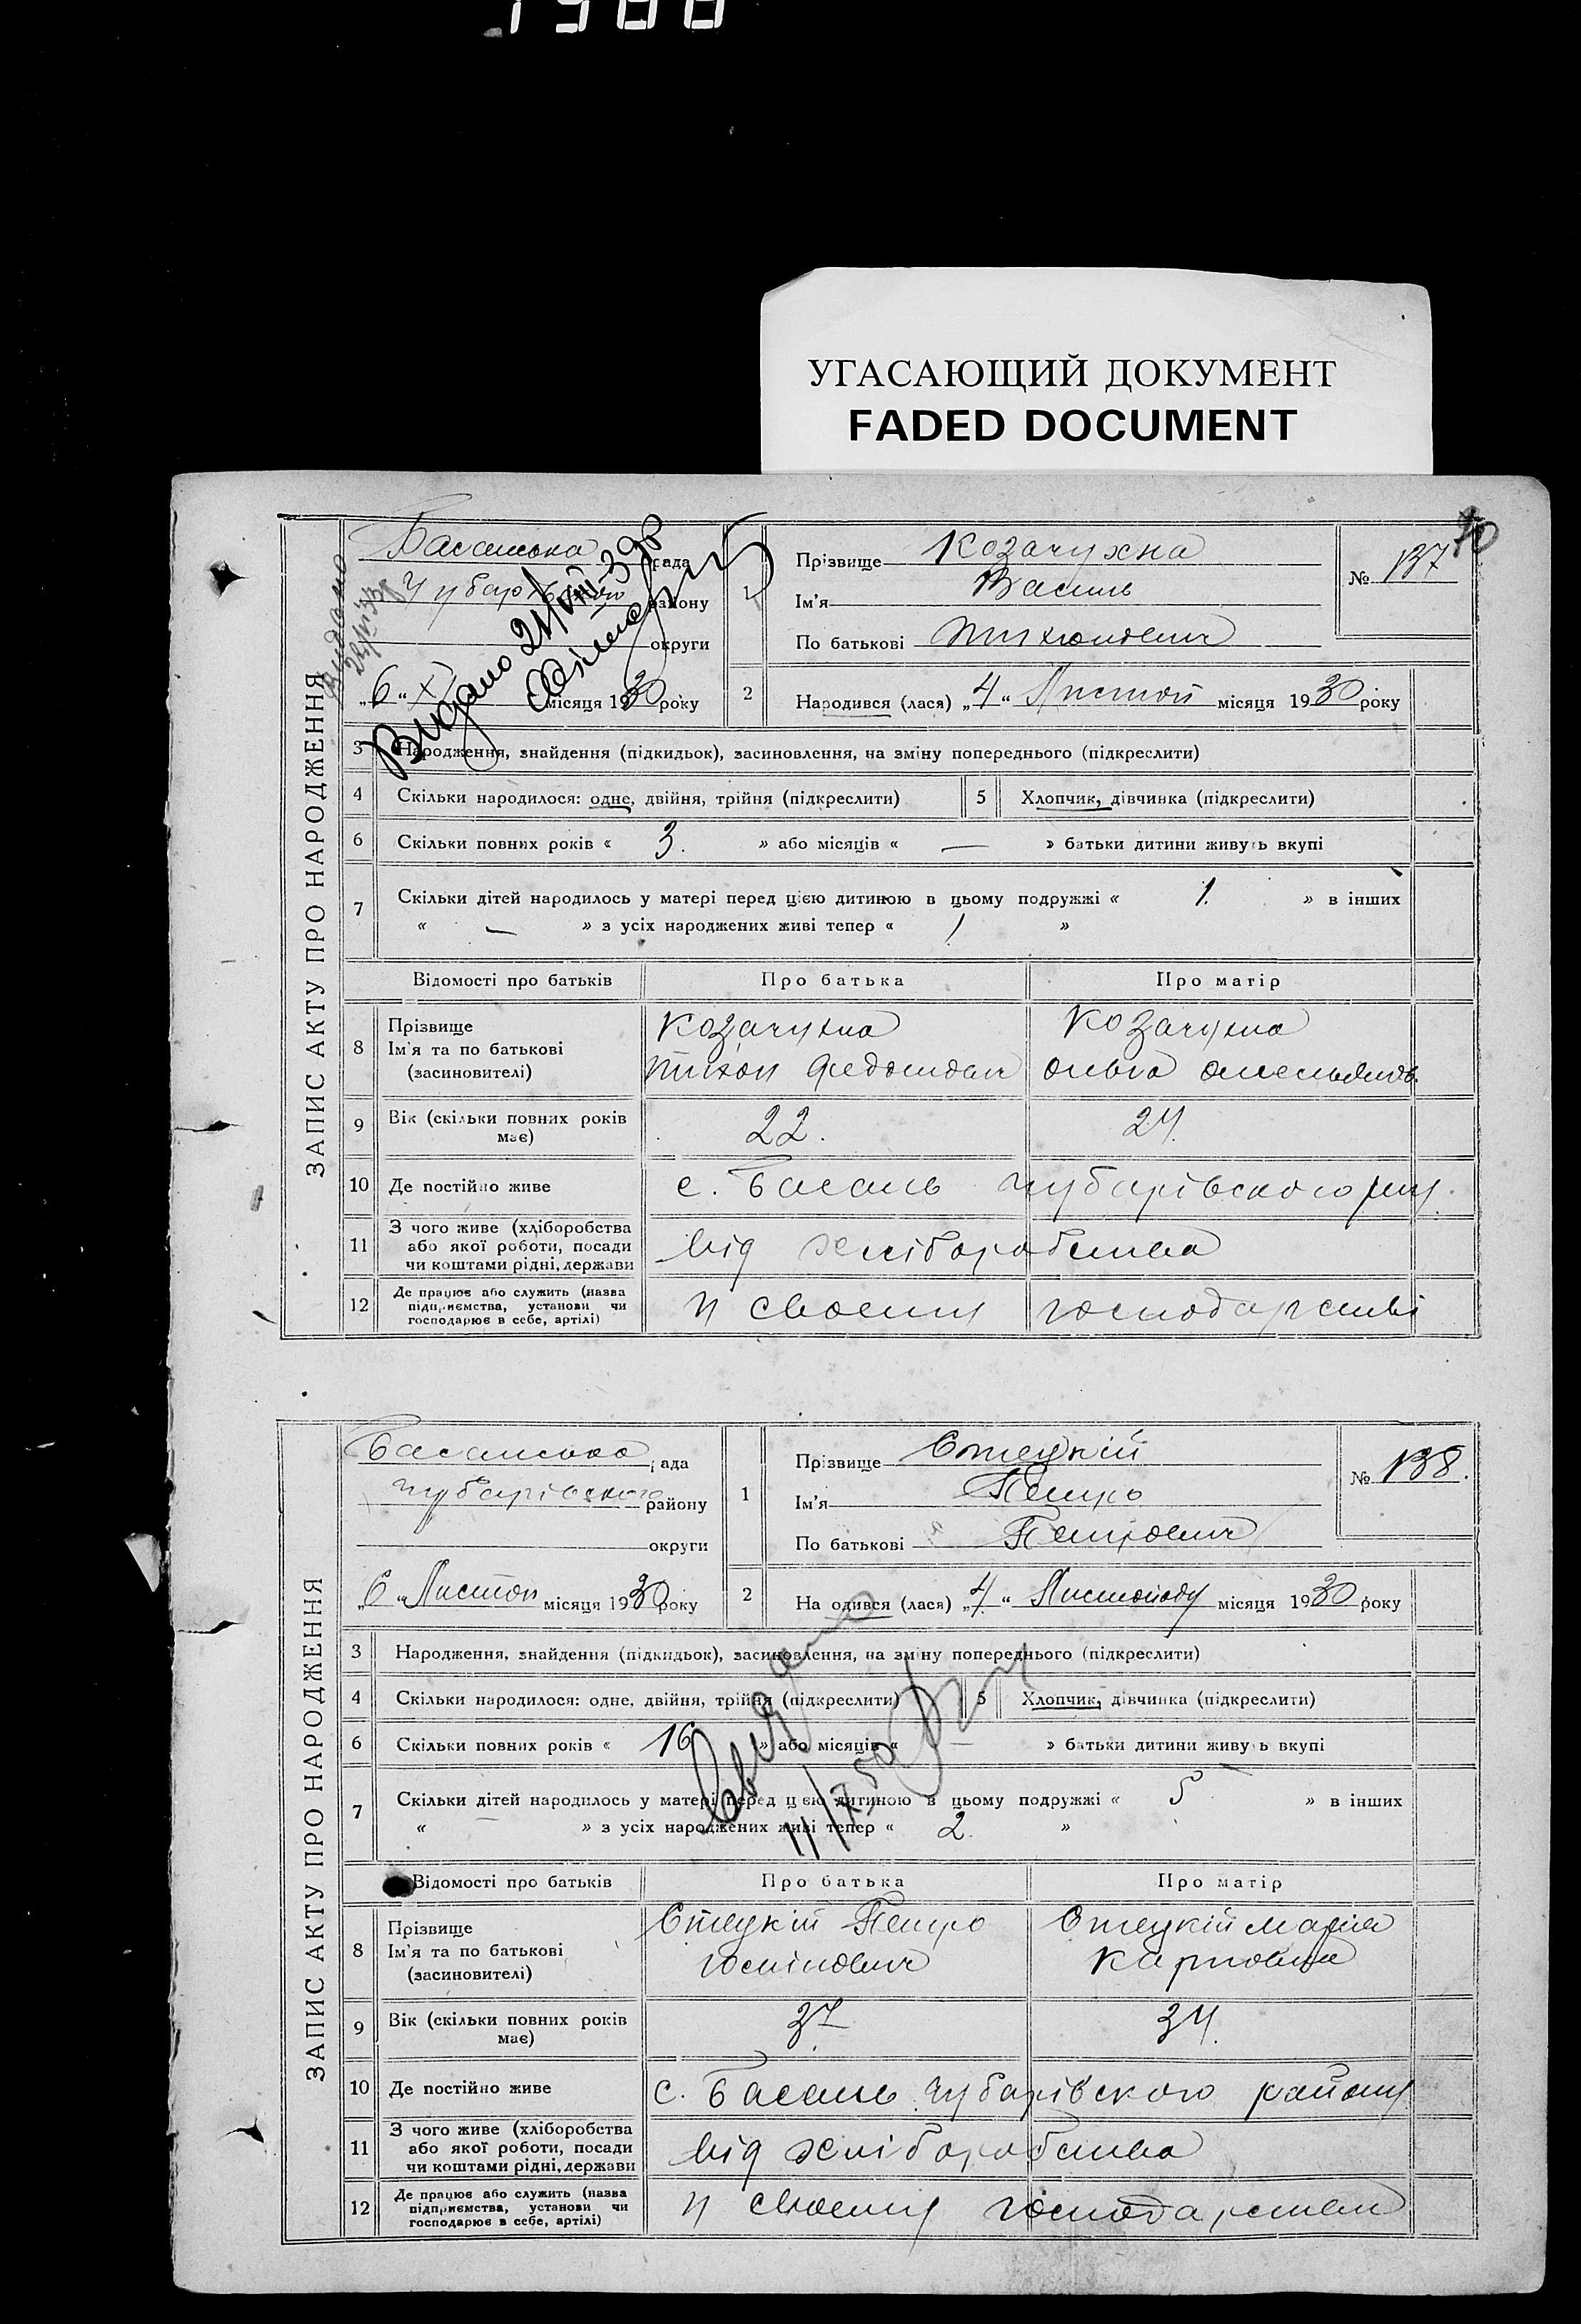 1988
УГАСАЮЩИЙ ДОКУМЕНТ
FADED DOCUMENT
ЗАПИС АКТУ ПРО НАРОДЖЕННЯ
Басанська рада
району
округи
"6" XI місяця 1930 року
Видано
Видано 21/VIII-39р
1
Прізвище Козачухна
Ім'я Василь
По батькові Тихонович
№ 137
2 Народився (лася) "4" Листоп місяця 1930 року
3 Народження, знайдення (підкидьок), засиновлення, на зміну попереднього (підкреслити)
4 Скільки народилося: одне, двійня, трійня (підкреслити) 5 Хлопчик, дівчинка (підкреслити)
6 Скільки повних років « 3. » або місяців « — » батьки дитини живуть вкупі
7 Скільки дітей народилось у матері перед цією дитиною в цьому подружжі « 1. » в інших
« — » з усіх народжених живі тепер « 1 »
Відомості про батьків Про батька Про матір
8 Прізвище Козачухна Козачухна
Ім'я та по батькові Тихон Ольга
(засиновителі)
9 Вік (скільки повних років має) 22. 24.
10 Де постійно живе с. Басань Чубарівського
11 З чого живе (хліборобства або якої роботи, посади чи коштами рідні, держави від хліборобства
12 Де працює або служить (назва підприємства, установи чи господарює в себе, артілі) у своему господарстві
ЗАПИС АКТУ ПРО НАРОДЖЕННЯ
Басанська рада
Чубарівського району
округи
"6" Листоп місяця 1930 року
1
Прізвище Отецкій
Ім'я Петро
По батькові Петрович
№ 138.
2 Народився (лася) "4" Листопаду місяця 1930 року
3 Народження, знайдення (підкидьок), засиновлення, на зміну попереднього (підкреслити)
4 Скільки народилося: одне, двійня, трійня (підкреслити) 5 Хлопчик, дівчинка (підкреслити)
6 Скільки повних років « 16 » або місяців « — » батьки дитини живуть вкупі
7 Скільки дітей народилось у матері перед цією дитиною в цьому подружжі « 5 » в інших
« — » з усіх народжених живі тепер « 2 »
Відомості про батьків Про батька Про матір
8 Прізвище Отецкій Петро Отецкій Марія
Ім'я та по батькові Карповна
(засиновителі)
9 Вік (скільки повних років має) 37 34.
10 Де постійно живе с. Басань Чубарівського району
11 З чого живе (хліборобства або якої роботи, посади чи коштами рідні, держави від хліборобства
12 Де працює або служить (назва підприємства, установи чи господарює в себе, артілі) у своему